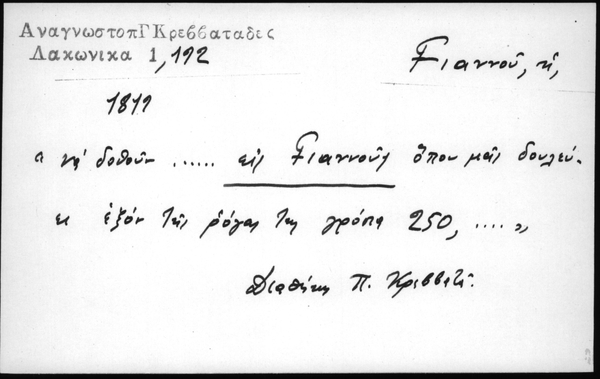 ΑναγνωστοπΓΚρεββαταδες
Λακωνικα 1,192
Γιαννού, ἡ,
1819
" νά δοθοῦν ...... εἰς Γιαννοῦς ὅπου μᾶς δουλεύ-
ει ἐξόν τῆς ρόγας της γρόσια 250, .... "
Διαθήκη Π. Κρεββατᾶ.